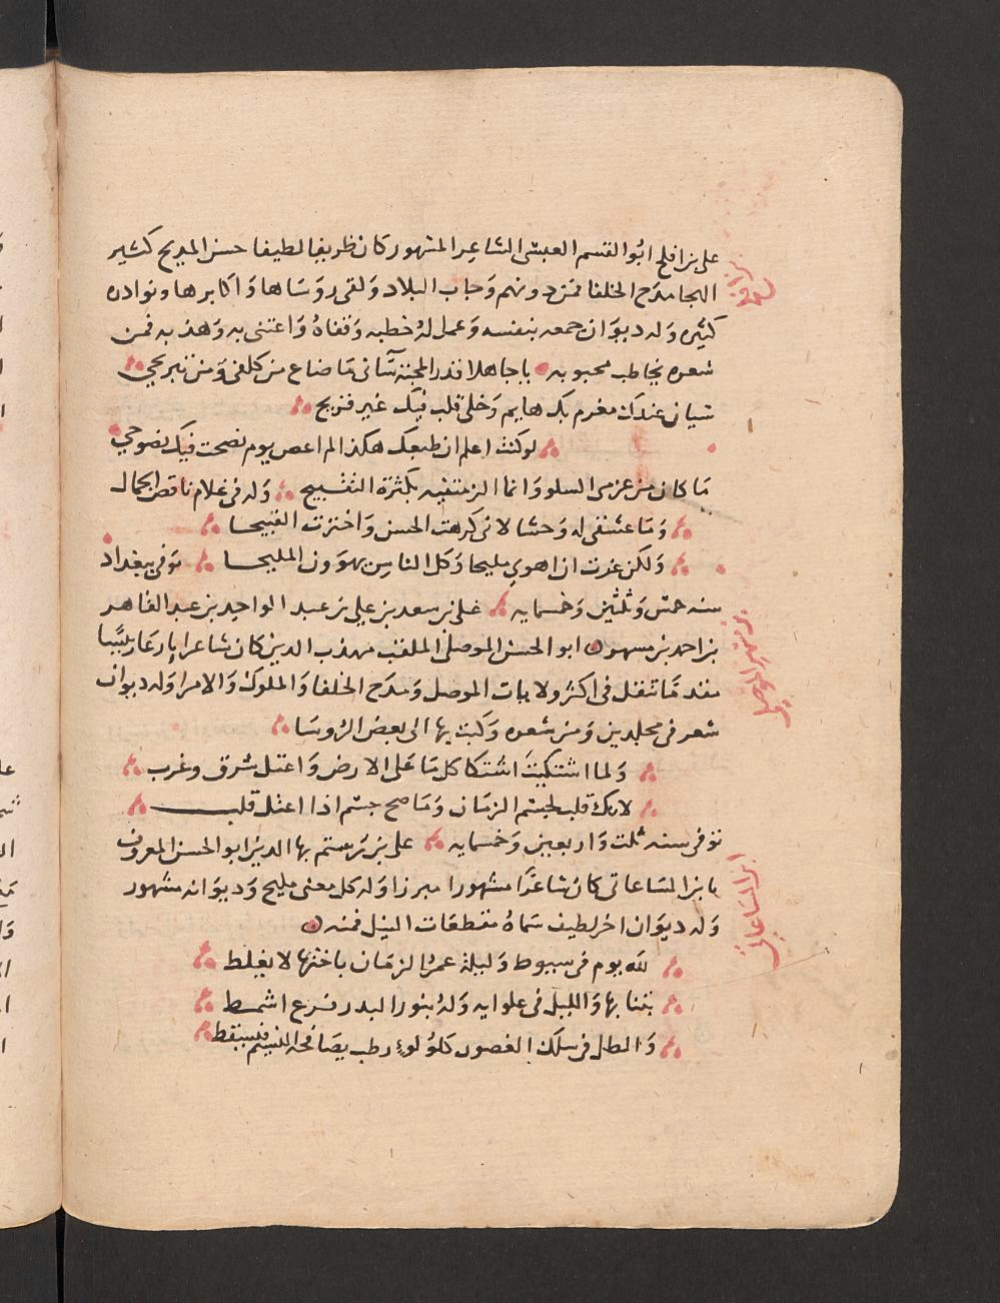 على بن افلح ابُو القسم العبسى الشاعِر المشهور كَان ظريفا لطيفا حسن المديح كثير
الهجا مدَح الخلفا فمَن دونهم وَجاب البلاد وَلقى روَسَاها وَاكابرها ونوادره
كثيره وَله ديوَان جمعه بنفسه وَعمل لهُ خطبه وَقفاهُ وَاعتنى به وَهذبه فمن
شعره يخاطب محبوبه ياجاهلا قدر المحبّة سَآنى مَا ضاع من كلفى وَمن تبريحى
سيان عندك مغرم بك هايم وَخلى قلب فيك غير قريح
لو كنت اعلم ان طبعك هكذا لم اعص يوم نصحت فيك نصوحي
مَا كان من عزمى السلو وَانما الزمتنيه بكثرة التقبيح وَله فى غلام ناقص الجمال
وَمَا عشقى له وَحشا لانى كرهت الحسن وَاخترت القبيحا
وَلكن غرت ان اهوى مليحا وَكل الناس يهوَون المليحا توَفى ببغداد
سنه خمس وَثلثين وَخمسمايه على بن سعد بن على بن عبد الواحد بن عبد القاهر
بن احمد بن مسهر ابو الحسن الموصلى الملقب مهذب الدين كان شاعرا بارعَا رئيسًا
مقدمَا تنقل فى اكثر ولايات الموصل وَمدَح الخلفا وَالملوك وَالامرا وَله ديوان
شعر فى مجلدين وَمن شعره وَكتب بها الى بعض الرُوسَا
وَلما اشتكيتَ اشتكا كل مَا عَلى الارض وَاعتل شرق وغرب
لانك قلب لجسم الزمَان وَمَا صح جسم اذا اعتل قلب
توفى سنه ثلث وَاربعين وَخمسمايه على بن رستم بها الدين ابو الحسن المعروف
بابن السَاعاتى كان شاعرًا مشهورا مبرزا وَله كل معنى مليح وَديوَانه مشهور
وَله ديوَان اخر لطيف سَماهُ مقطعَات النيل فمنه
لله يوم فى سيوط وَليلة عمرُ الزمَان باختها لا يغلط
بتنا بها وَالليل فى علوايه وَلهُ بنور البدر فرع اشمط
وَالطل فى سلك الغصون كلوُلوء رطب يصَافحه النسيم فيسقط
ابن افلح
بن مسهر الموصلى
ابن الساعاتى